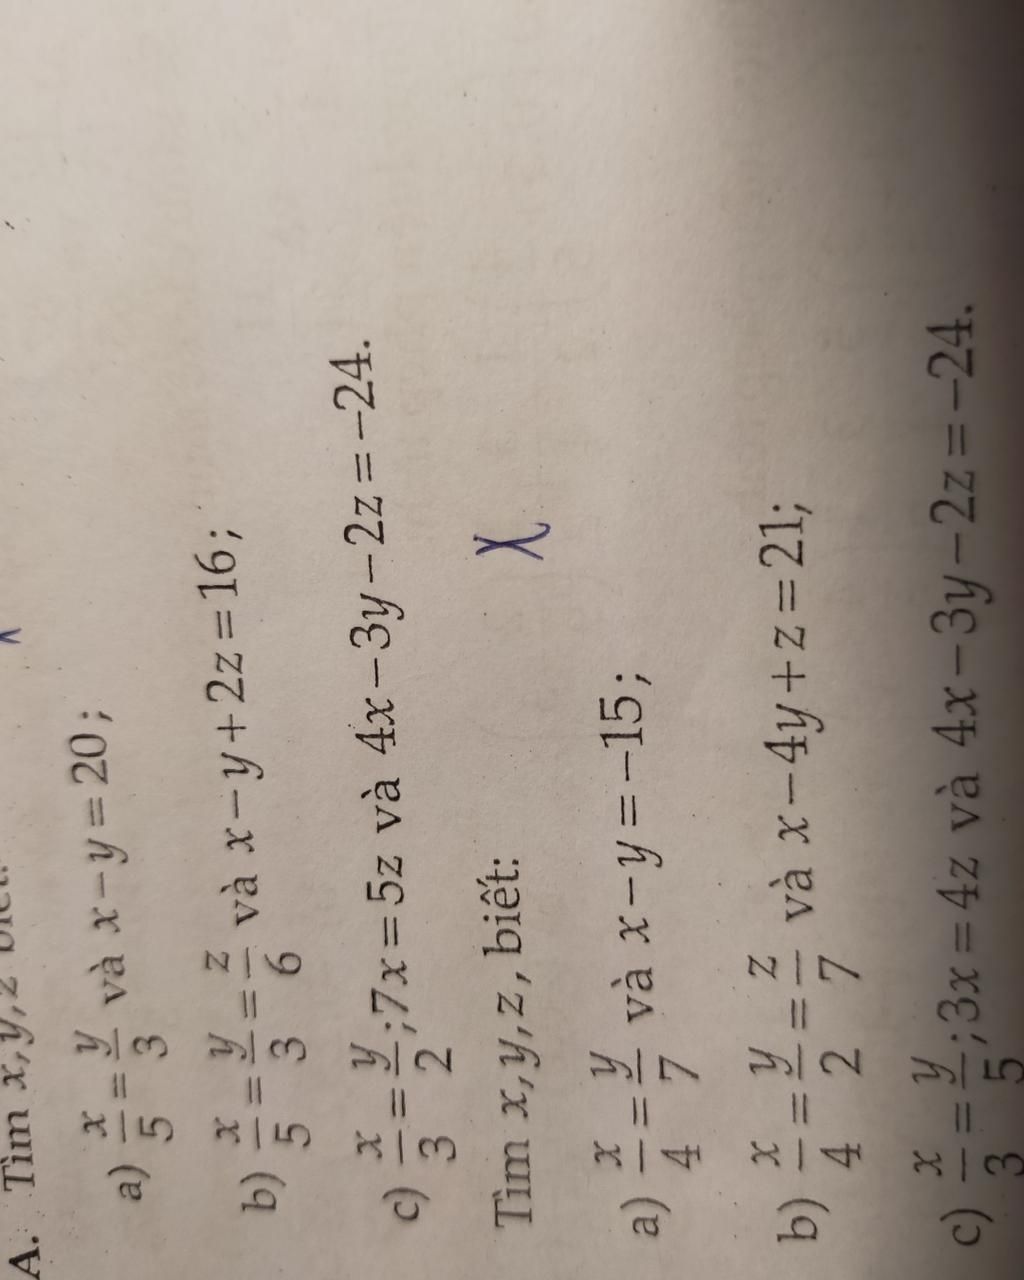 A. Tìm x, y, z biết:
a) x/5 = y/3 và x − y = 20;
b) x/5 = y/3 = z/6 và x − y + 2z = 16;
c) x/3 = y/2; 7x = 5z và 4x − 3y − 2z = −24.
Tìm x, y, z, biết:
a) x/4 = y/7 và x − y = −15;
b) x/4 = y/2 = z/7 và x − 4y + z = 21;
c) x/3 = y/5; 3x = 4z và 4x − 3y − 2z = −24.